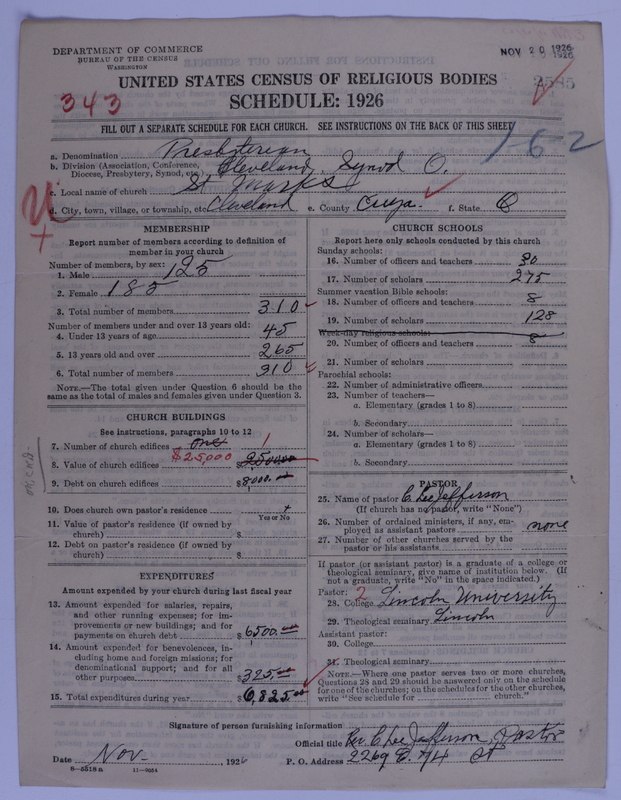 DEPARTMENT OF COMMERCE
BUREAU OF THE CENSUS
WASHINGTON
NOV 20 1926
UNITED STATES CENSUS OF RELIGIOUS BODIES
2585
343
SCHEDULE: 1926
FILL OUT A SEPARATE SCHEDULE FOR EACH CHURCH. SEE INSTRUCTIONS ON THE BACK OF THIS SHEET
162
a. Denomination Presbyterian
b. Division (Association, Conference, Diocese, Presbytery, Synod, etc.) Cleveland, Synod O.
c. Local name of church St Marks
d. City, town, village, or township, etc Cleveland e. County Cuya. f. State O
MEMBERSHIP
Report number of members according to definition of
member in your church
Number of members, by sex:
1. Male 125
2. Female 185
3. Total number of members 310
Number of members under and over 13 years old:
4. Under 13 years of age 45
5. 13 years old and over 265
6. Total number of members 310
NOTE.—The total given under Question 6 should be the
same as the total of males and females given under Question 3.
CHURCH BUILDINGS
See instructions, paragraphs 10 to 12
7. Number of church edifices one 1
$25,000
8. Value of church edifices $25000.00
9. Debt on church edifices $8000.00
10. Does church own pastor's residence
Yes or No
11. Value of pastor's residence (if owned by
church) $
12. Debt on pastor's residence (if owned by
church) $
EXPENDITURES
Amount expended by your church during last fiscal year
13. Amount expended for salaries, repairs,
and other running expenses; for im-
provements or new buildings; and for
payments on church debt $6500.00
14. Amount expended for benevolences, in-
cluding home and foreign missions; for
denominational support; and for all
other purposes 325.00
15. Total expenditures during year $6,825.00
CHURCH SCHOOLS
Report here only schools conducted by this church
Sunday schools:
16. Number of officers and teachers 20
17. Number of scholars 275
Summer vacation Bible schools:
18. Number of officers and teachers 8
19. Number of scholars 128
Week-day religious schools:
20. Number of officers and teachers 8
21. Number of scholars
Parochial schools:
22. Number of administrative officers
23. Number of teachers—
a. Elementary (grades 1 to 8)
b. Secondary
24. Number of scholars—
a. Elementary (grades 1 to 8)
b. Secondary
PASTOR
25. Name of pastor C. Lee Jefferson
(If church has no pastor, write "None")
26. Number of ordained ministers, if any, em-
ployed as assistant pastors none
27. Number of other churches served by the
pastor or his assistants
If pastor (or assistant pastor) is a graduate of a college or
theological seminary, give name of institution below. (If
not a graduate, write "No" in the space indicated.)
Pastor: 2
28. College Lincoln University
29. Theological seminary Lincoln
Assistant pastor:
30. College
31. Theological seminary
NOTE.—Where one pastor serves two or more churches,
Questions 28 and 29 should be answered only on the schedule
for one of the churches; on the schedules for the other churches,
write "See schedule for church."
Signature of person furnishing information
Official title Rev. C. Lee Jefferson, Pastor
Date Nov- 1926 P. O. Address 2269 E. 74 St
8—5518a 11—9654